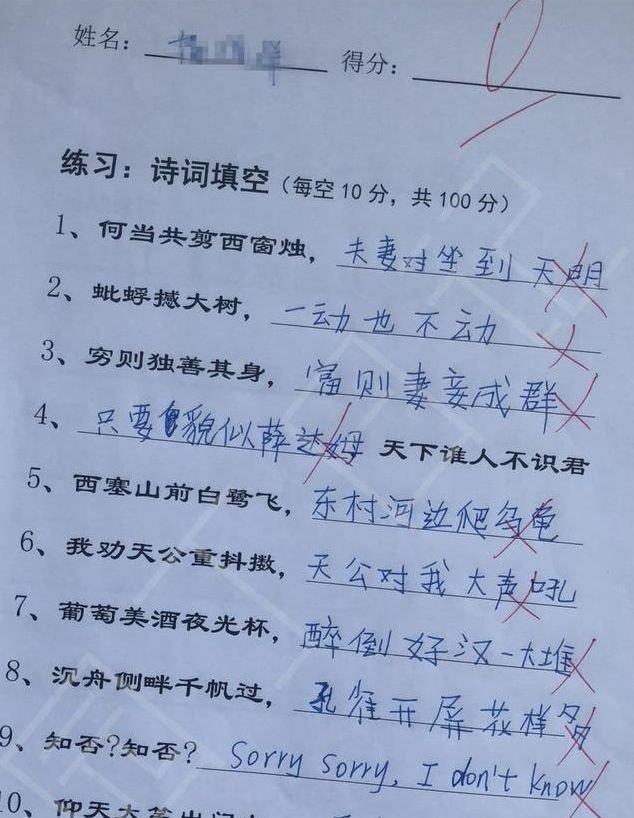 姓名: 得分: 0
练习：诗词填空（每空10分，共100分）
1、何当共剪西窗烛，夫妻对坐到天明
2、蚍蜉撼大树，一动也不动
3、穷则独善其身，富则妻妾成群
4、只要貌似薛达姆 天下谁人不识君
5、西塞山前白鹭飞，东村河边爬乌龟
6、我劝天公重抖擞，天公对我大声吼
7、葡萄美酒夜光杯，醉倒好汉一大堆
8、沉舟侧畔千帆过，孔雀开屏花样多
9、知否?知否? Sorry sorry, I don't know
10、仰天大笑出门